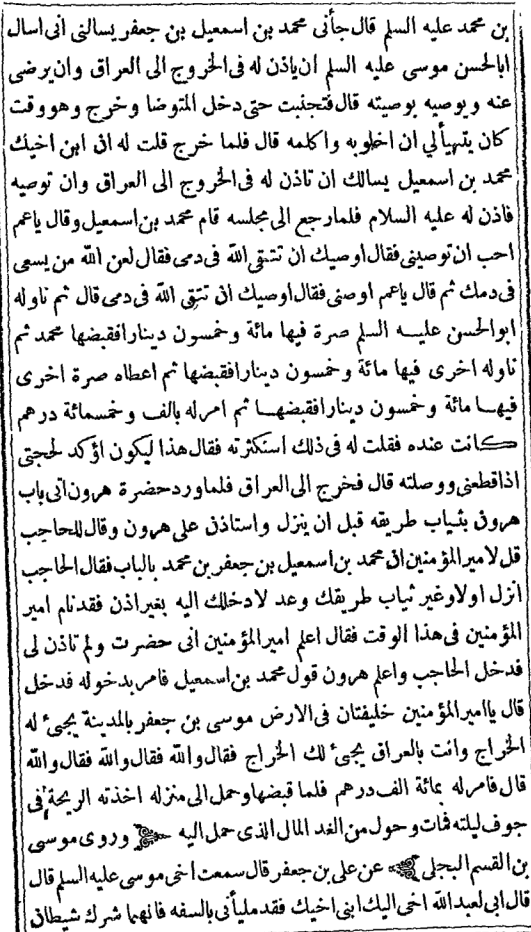 بن محمد عليه السلم قال جأنى محمد بن اسمعيل بن جعفر يسالنى انى اسال
ابالحسن موسى عليه السلم ان ياذن له فى الخروج الى العراق وان يرضى
عنه ويوصيه بوصيته قال فتجنبت حتى دخل المتوضا وخرج وهو وقت
كان يتهيألي ان اخلوبه واكلمه قال فلما خرج قلت له ان ابن اخيك
محمد بن اسمعيل يسالك ان تاذن له فى الخروج الى العراق وان توصيه
فاذن له عليه السلام فلمارجع الى مجلسه قام محمد بن اسمعيل وقال ياعم
احب ان توصينى فقال اوصيك ان تتقى الله فى دمى فقال لعن الله من يسعى
فى دمك ثم قال ياعم اوصنى فقال اوصيك ان تتقى الله فى دمى قال ثم ناوله
ابوالحسن عليه السلم صرة فيها مائة وخمسون دينارا فقبضها محمد ثم
ناوله اخرى فيها مائة وخمسون دينارا فقبضها ثم اعطاه صرة اخرى
فيها مائة وخمسون دينارا فقبضها ثم امرله بالف وخمسمائة درهم
كانت عنده فقلت له فى ذلك استكثرته فقال هذا ليكون اؤكد لحجتى
اذا قطعنى ووصلته قال فخرج الى العراق فلما ورد حضرة هرون اتى باب
هرون بثياب طريقه قبل ان ينزل واستاذن على هرون وقال للحاجب
قل لامير المؤمنين ان محمد بن اسمعيل بن جعفر بن محمد بالباب فقال الحاجب
انزل اولا وغير ثياب طريقك وعد لادخلك اليه بغير اذن فقد نام امير
المؤمنين فى هذا الوقت فقال اعلم امير المؤمنين انى حضرت ولم تاذن لى
فدخل الحاجب واعلم هرون قول محمد بن اسمعيل فامر بدخوله فدخل
قال ياامير المؤمنين خليفتان فى الارض موسى بن جعفر بالمدينة يجىء له
الخراج وانت بالعراق يجىء لك الخراج فقال والله فقال والله فقال والله
قال فامرله بمائة الف درهم فلما قبضها وحمل الى منزله اخذته الريحة فى
جوف ليلته فمات وحول من الغد المال الذى حمل اليه وروى موسى
بن القسم البجلى عن على بن جعفر قال سمعت اخى موسى عليه السلم قال
قال ابى لعبد الله اخى اليك ابنى اخيك فقد مليأنى بالسفه فانهما شرك شيطان